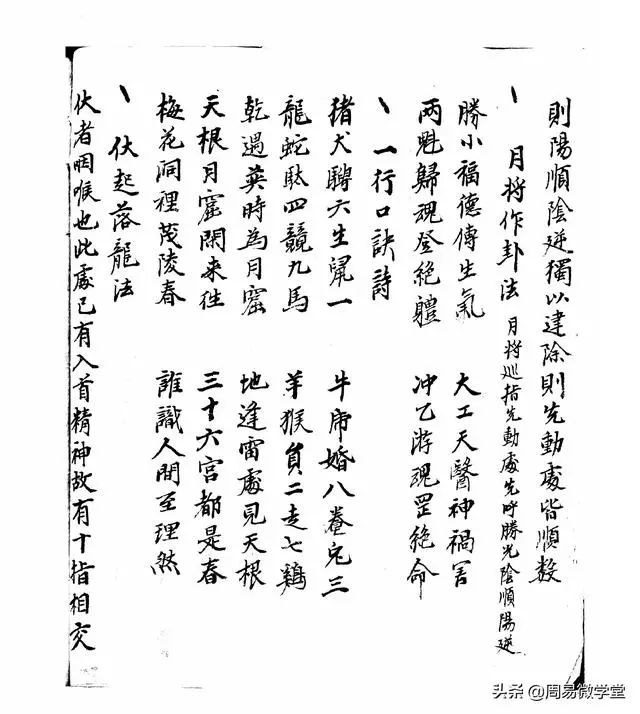 則陽順陰逆獨以建除則先動處皆順數
、月将作卦法 月将巡指先動處先呼勝光陰順陽逆
勝小福德傳生氣 大工天醫神禍害
兩魁歸魂登絕體 冲乙游魂罡絕命
、一行口訣詩
猪犬騁六生鼠一 牛虎婚八卷兔三
龍蛇馱四競九馬 羊猴負二走七鷄
乾遇英時為月窟 地逢雷處見天根
天根月窟閑来徃 三十六宮都是春
梅花洞裡茂陵春 誰識人間至理然
、伏起落龍法
伏者咽喉也此處已有入首精神故有十指相交
头条 @周易微学堂